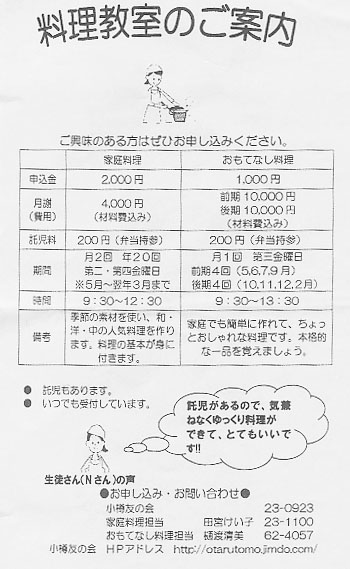 料理教室のご案内
ご興味のある方はぜひお申し込みください。
家庭料理 おもてなし料理
申込金 2,000円 1,000円
月謝 4,000円 前期 10,000円
(費用) (材料費込み) 後期 10,000円
(材料費込み)
託児料 200円(弁当持参) 200円(弁当持参)
月2回 年20回 月1回 第三金曜日
期間 第二・第四金曜日 前期4回(5,6,7,9月)
※5月~翌年3月まで 後期4回(10,11,12,2月)
時間 9:30~12:30 9:30~13:30
季節の素材を使い、和・ 家庭でも簡単に作れて、ちょっ
備考 洋・中の人気料理を作り とおしゃれな料理です。本格的
ます。料理の基本が身に な一品を覚えましょう。
付きます。
● 託児もあります。
● いつでも受付しています。
託児があるので、気兼
ねなくゆっくり料理が
できて、とてもいいで
す!!
生徒さん(Nさん)の声
●お申し込み・お問い合わせ●
小樽友の会 23-0923
家庭料理担当 田宮けい子 23-1100
おもてなし料理担当 樋渡清美 62-4057
小樽友の会 HPアドレス http://otarutomo.jimdo.com/